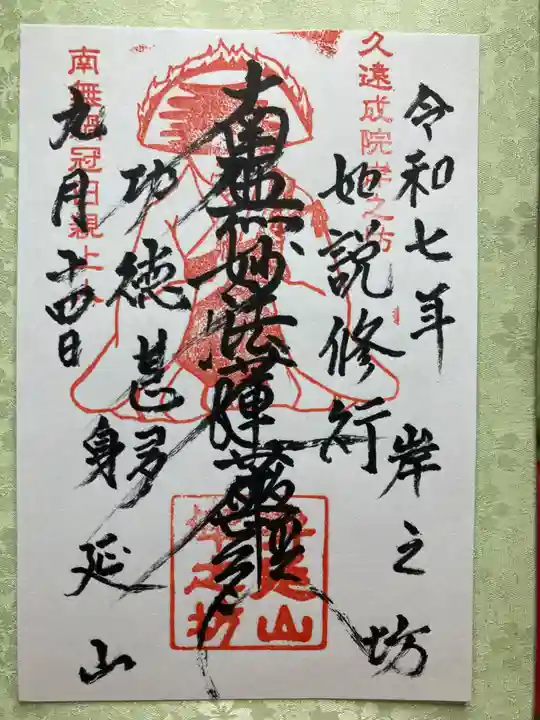 久遠成院岸之坊
令和七年
岸之坊
如説修行
南無妙法蓮華経
功徳甚多
身延山
九月十四日
南無鍋冠日親上人
身延山
岸之坊